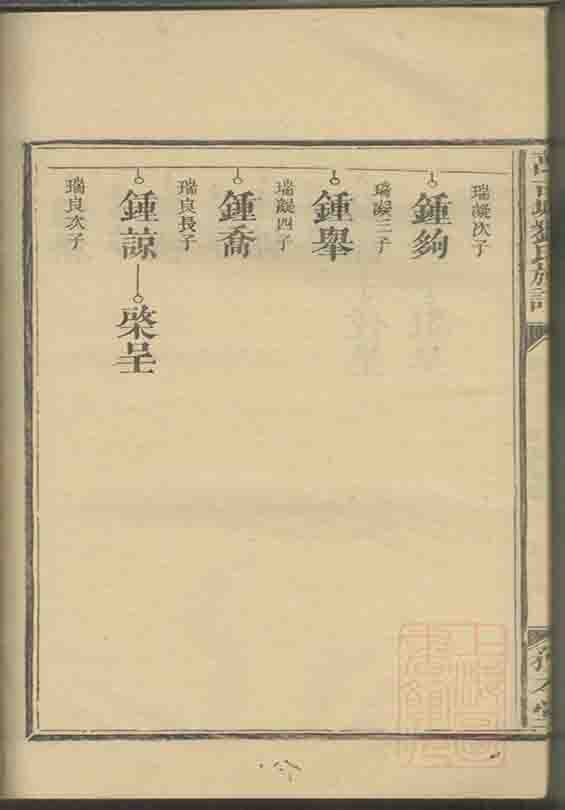 劉氏族
本堂
瑞凝次子
鍾夠
瑞凝三子
鍾舉
瑞凝四子
鍾喬
瑞良長子
鍾諒
棨呈
瑞良次子